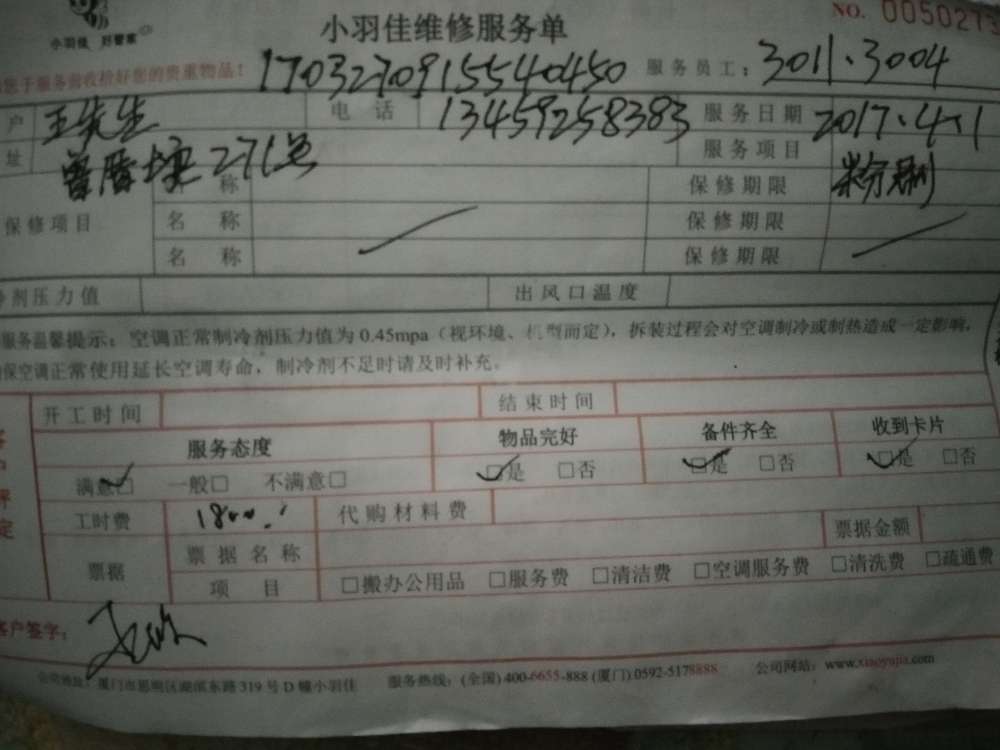 小羽佳 好管家
小羽佳维修服务单
NO. 0050273
您于服务前收捡好您的贵重物品! 17032709155540450 服务员工: 3011.3004
户 王先生 电话 13459258383 服务日期 2017.4.1
址 曾厝垵271号 服务项目 粉刷
保修项目 称 保修期限
名称 保修期限
名称 保修期限
剂压力值 出风口温度
服务温馨提示: 空调正常制冷剂压力值为0.45mpa (视环境、机型而定), 拆装过程会对空调制冷或制热造成一定影响,
保空调正常使用延长空调寿命, 制冷剂不足时请及时补充。
开工时间 结束时间
服务态度 物品完好 备件齐全 收到卡片
满意□ 一般□ 不满意□ □是 □否 □是 □否 □是 □否
工时费 1800. 代购材料费
票据 票据名称 票据金额
项目 □搬办公用品 □服务费 □清洁费 □空调服务费 □清洗费 □疏通费
客户签字:
公司地址: 厦门市思明区湖滨东路319号D幢小羽佳 服务热线: (全国) 400-6655-888 (厦门) 0592-5178888 公司网站: www.xiaoyujia.com